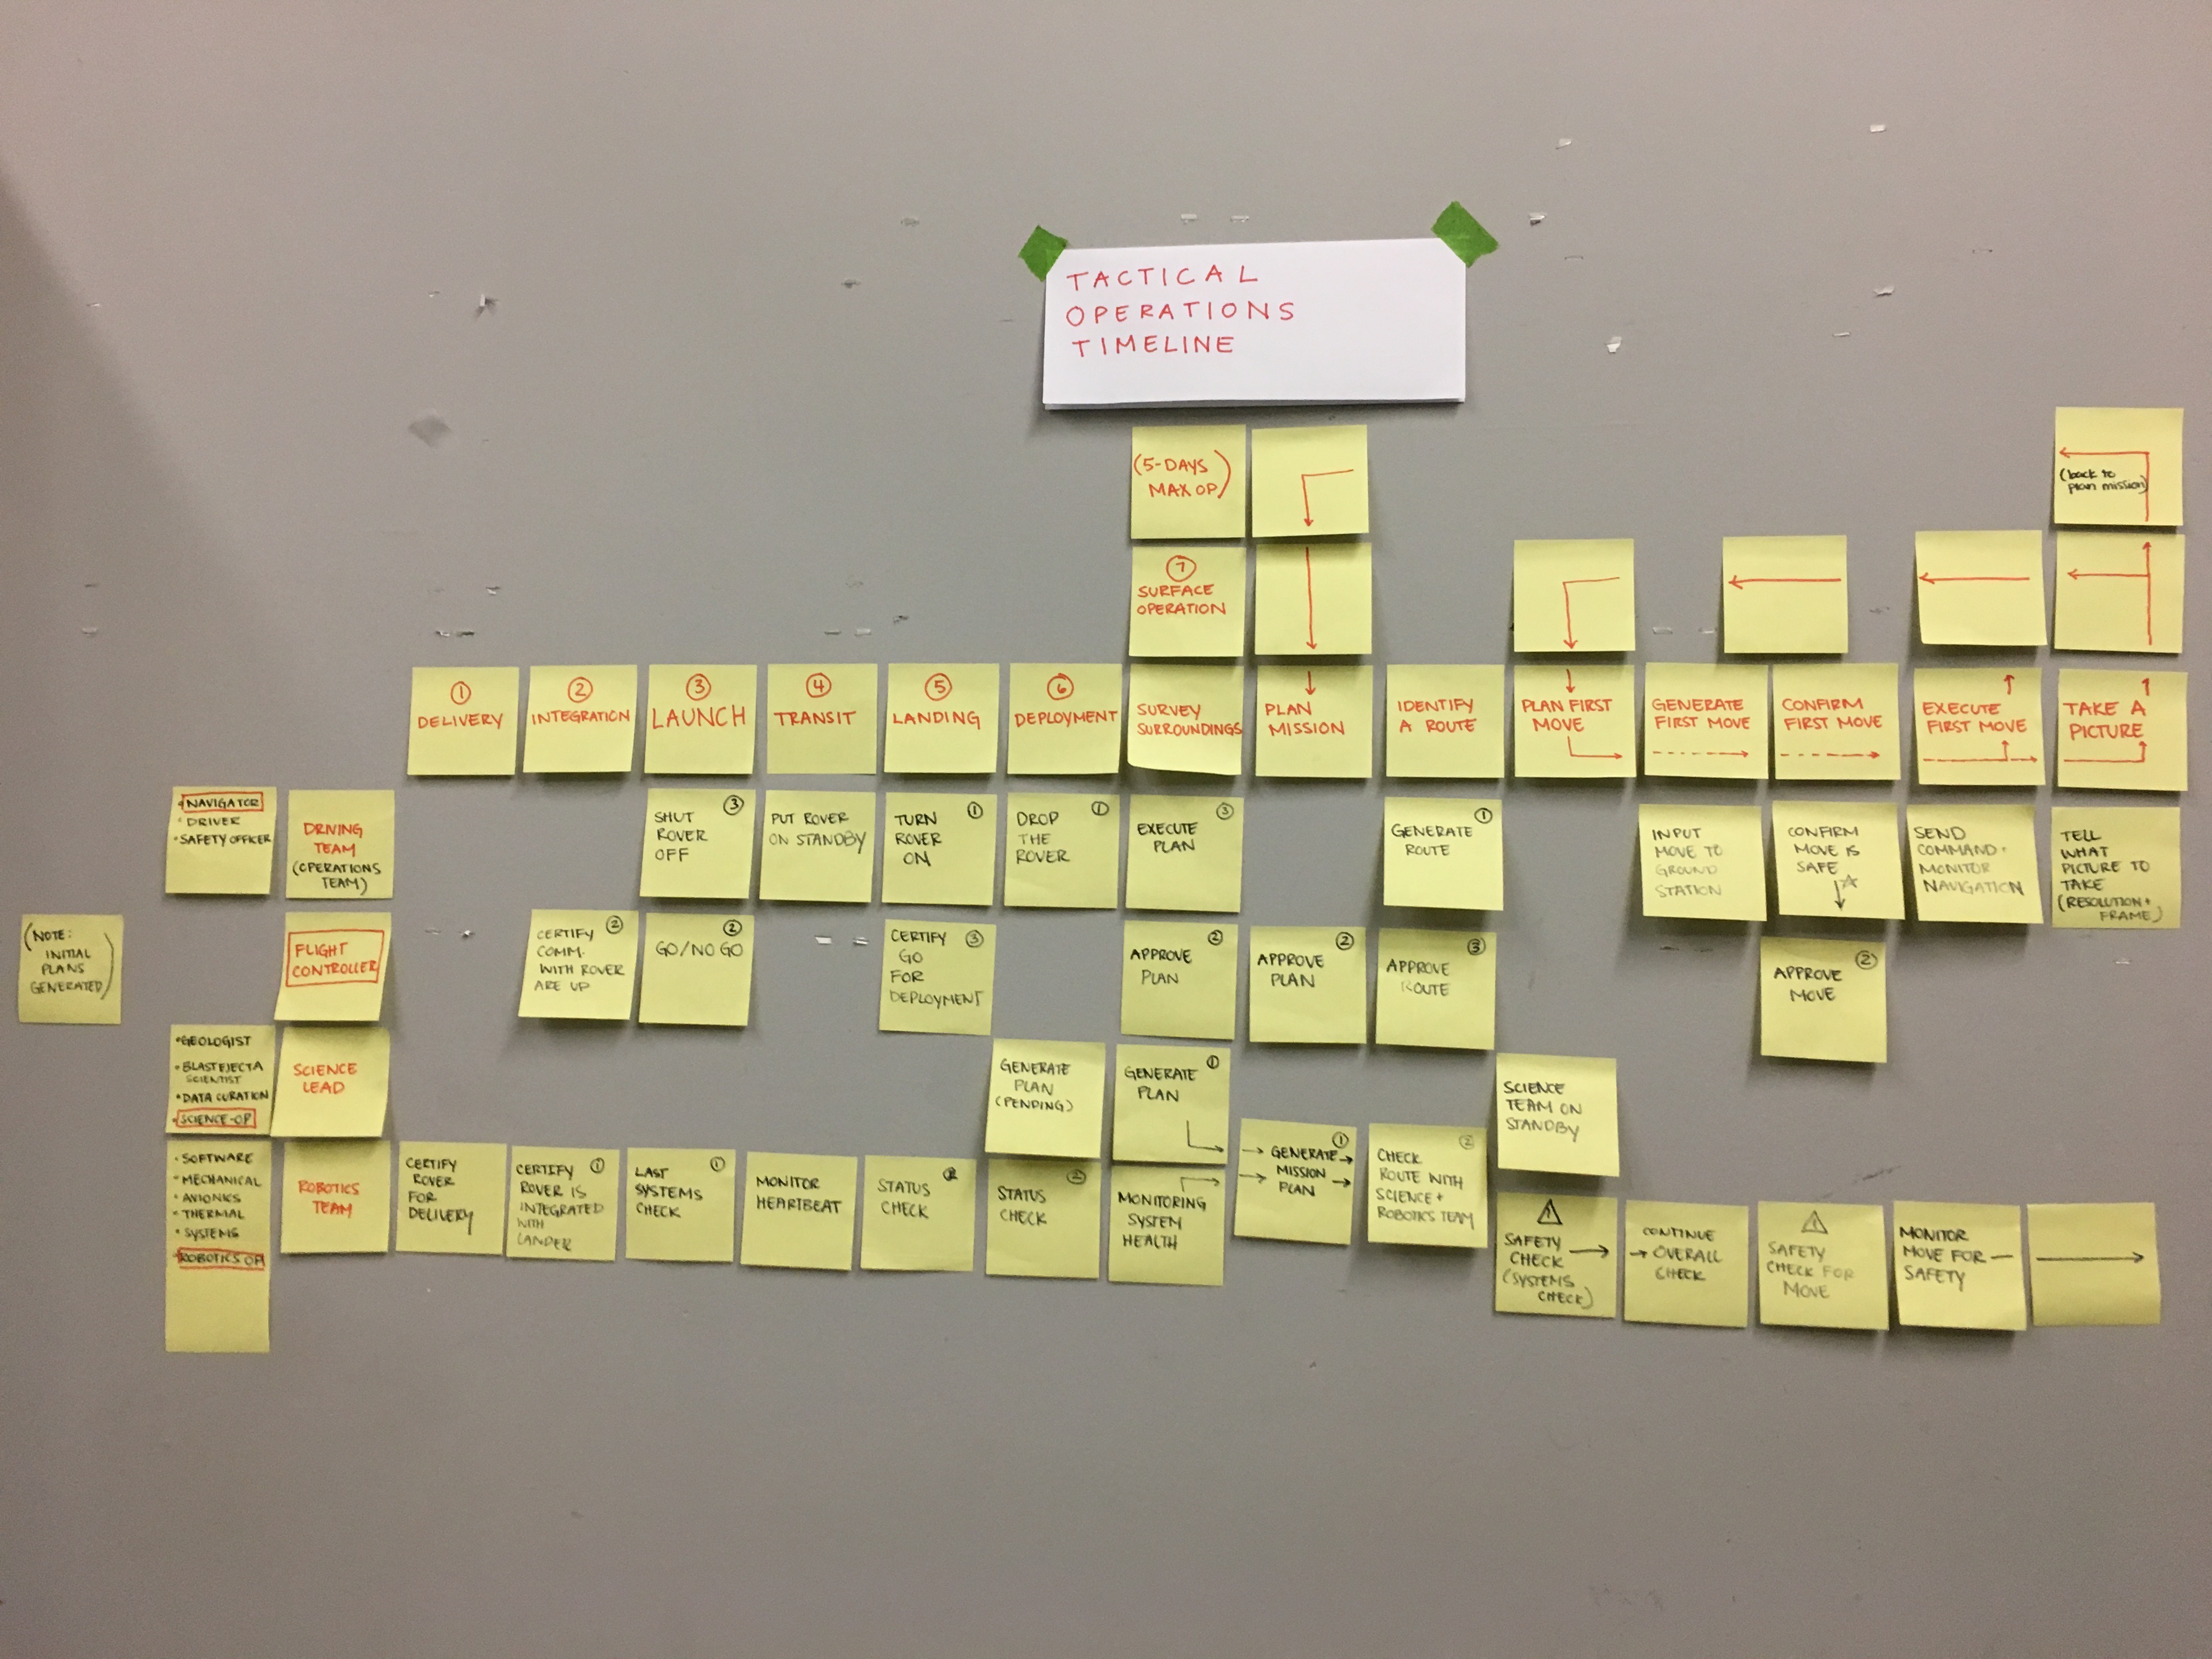 TACTICAL
OPERATIONS
TIMELINE
(5-DAYS
MAX OP)
(back to
plan mission)
⑦
SURFACE
OPERATION
①
DELIVERY
②
INTEGRATION
③
LAUNCH
④
TRANSIT
⑤
LANDING
⑥
DEPLOYMENT
SURVEY
SURROUNDINGS
PLAN
MISSION
IDENTIFY
A ROUTE
PLAN FIRST
MOVE
GENERATE
FIRST MOVE
CONFIRM
FIRST MOVE
EXECUTE
FIRST MOVE
TAKE A
PICTURE
• NAVIGATOR
• DRIVER
• SAFETY OFFICER
DRIVING
TEAM
(OPERATIONS
TEAM)
③
SHUT
ROVER
OFF
PUT ROVER
ON STANDBY
①
TURN
ROVER
ON
①
DROP
THE
ROVER
③
EXECUTE
PLAN
①
GENERATE
ROUTE
INPUT
MOVE TO
GROUND
STATION
CONFIRM
MOVE IS
SAFE
SEND
COMMAND •
MONITOR
NAVIGATION
TELL
WHAT
PICTURE TO
TAKE
(RESOLUTION +
FRAME)
(NOTE:
INITIAL
PLANS
GENERATED)
FLIGHT
CONTROLLER
②
CERTIFY
COMM.
WITH ROVER
ARE UP
②
GO/NO GO
③
CERTIFY
GO
FOR
DEPLOYMENT
②
APPROVE
PLAN
②
APPROVE
PLAN
③
APPROVE
ROUTE
②
APPROVE
MOVE
• GEOLOGIST
• BLAST EJECTA
SCIENTIST
• DATA CURATION
• SCIENCE-OP
SCIENCE
LEAD
GENERATE
PLAN
(PENDING)
①
GENERATE
PLAN
SCIENCE
TEAM ON
STANDBY
• SOFTWARE
• MECHANICAL
• AVIONICS
• THERMAL
• SYSTEMS
• ROBOTICS OP
ROBOTICS
TEAM
CERTIFY
ROVER
FOR
DELIVERY
①
CERTIFY
ROVER IS
INTEGRATED
WITH
LANDER
①
LAST
SYSTEMS
CHECK
MONITOR
HEARTBEAT
②
STATUS
CHECK
②
STATUS
CHECK
MONITORING
SYSTEM
HEALTH
①
GENERATE
MISSION
PLAN
②
CHECK
ROUTE WITH
SCIENCE +
ROBOTICS TEAM
SAFETY
CHECK
(SYSTEMS
CHECK)
CONTINUE
OVERALL
CHECK
SAFETY
CHECK FOR
MOVE
MONITOR
MOVE FOR
SAFETY